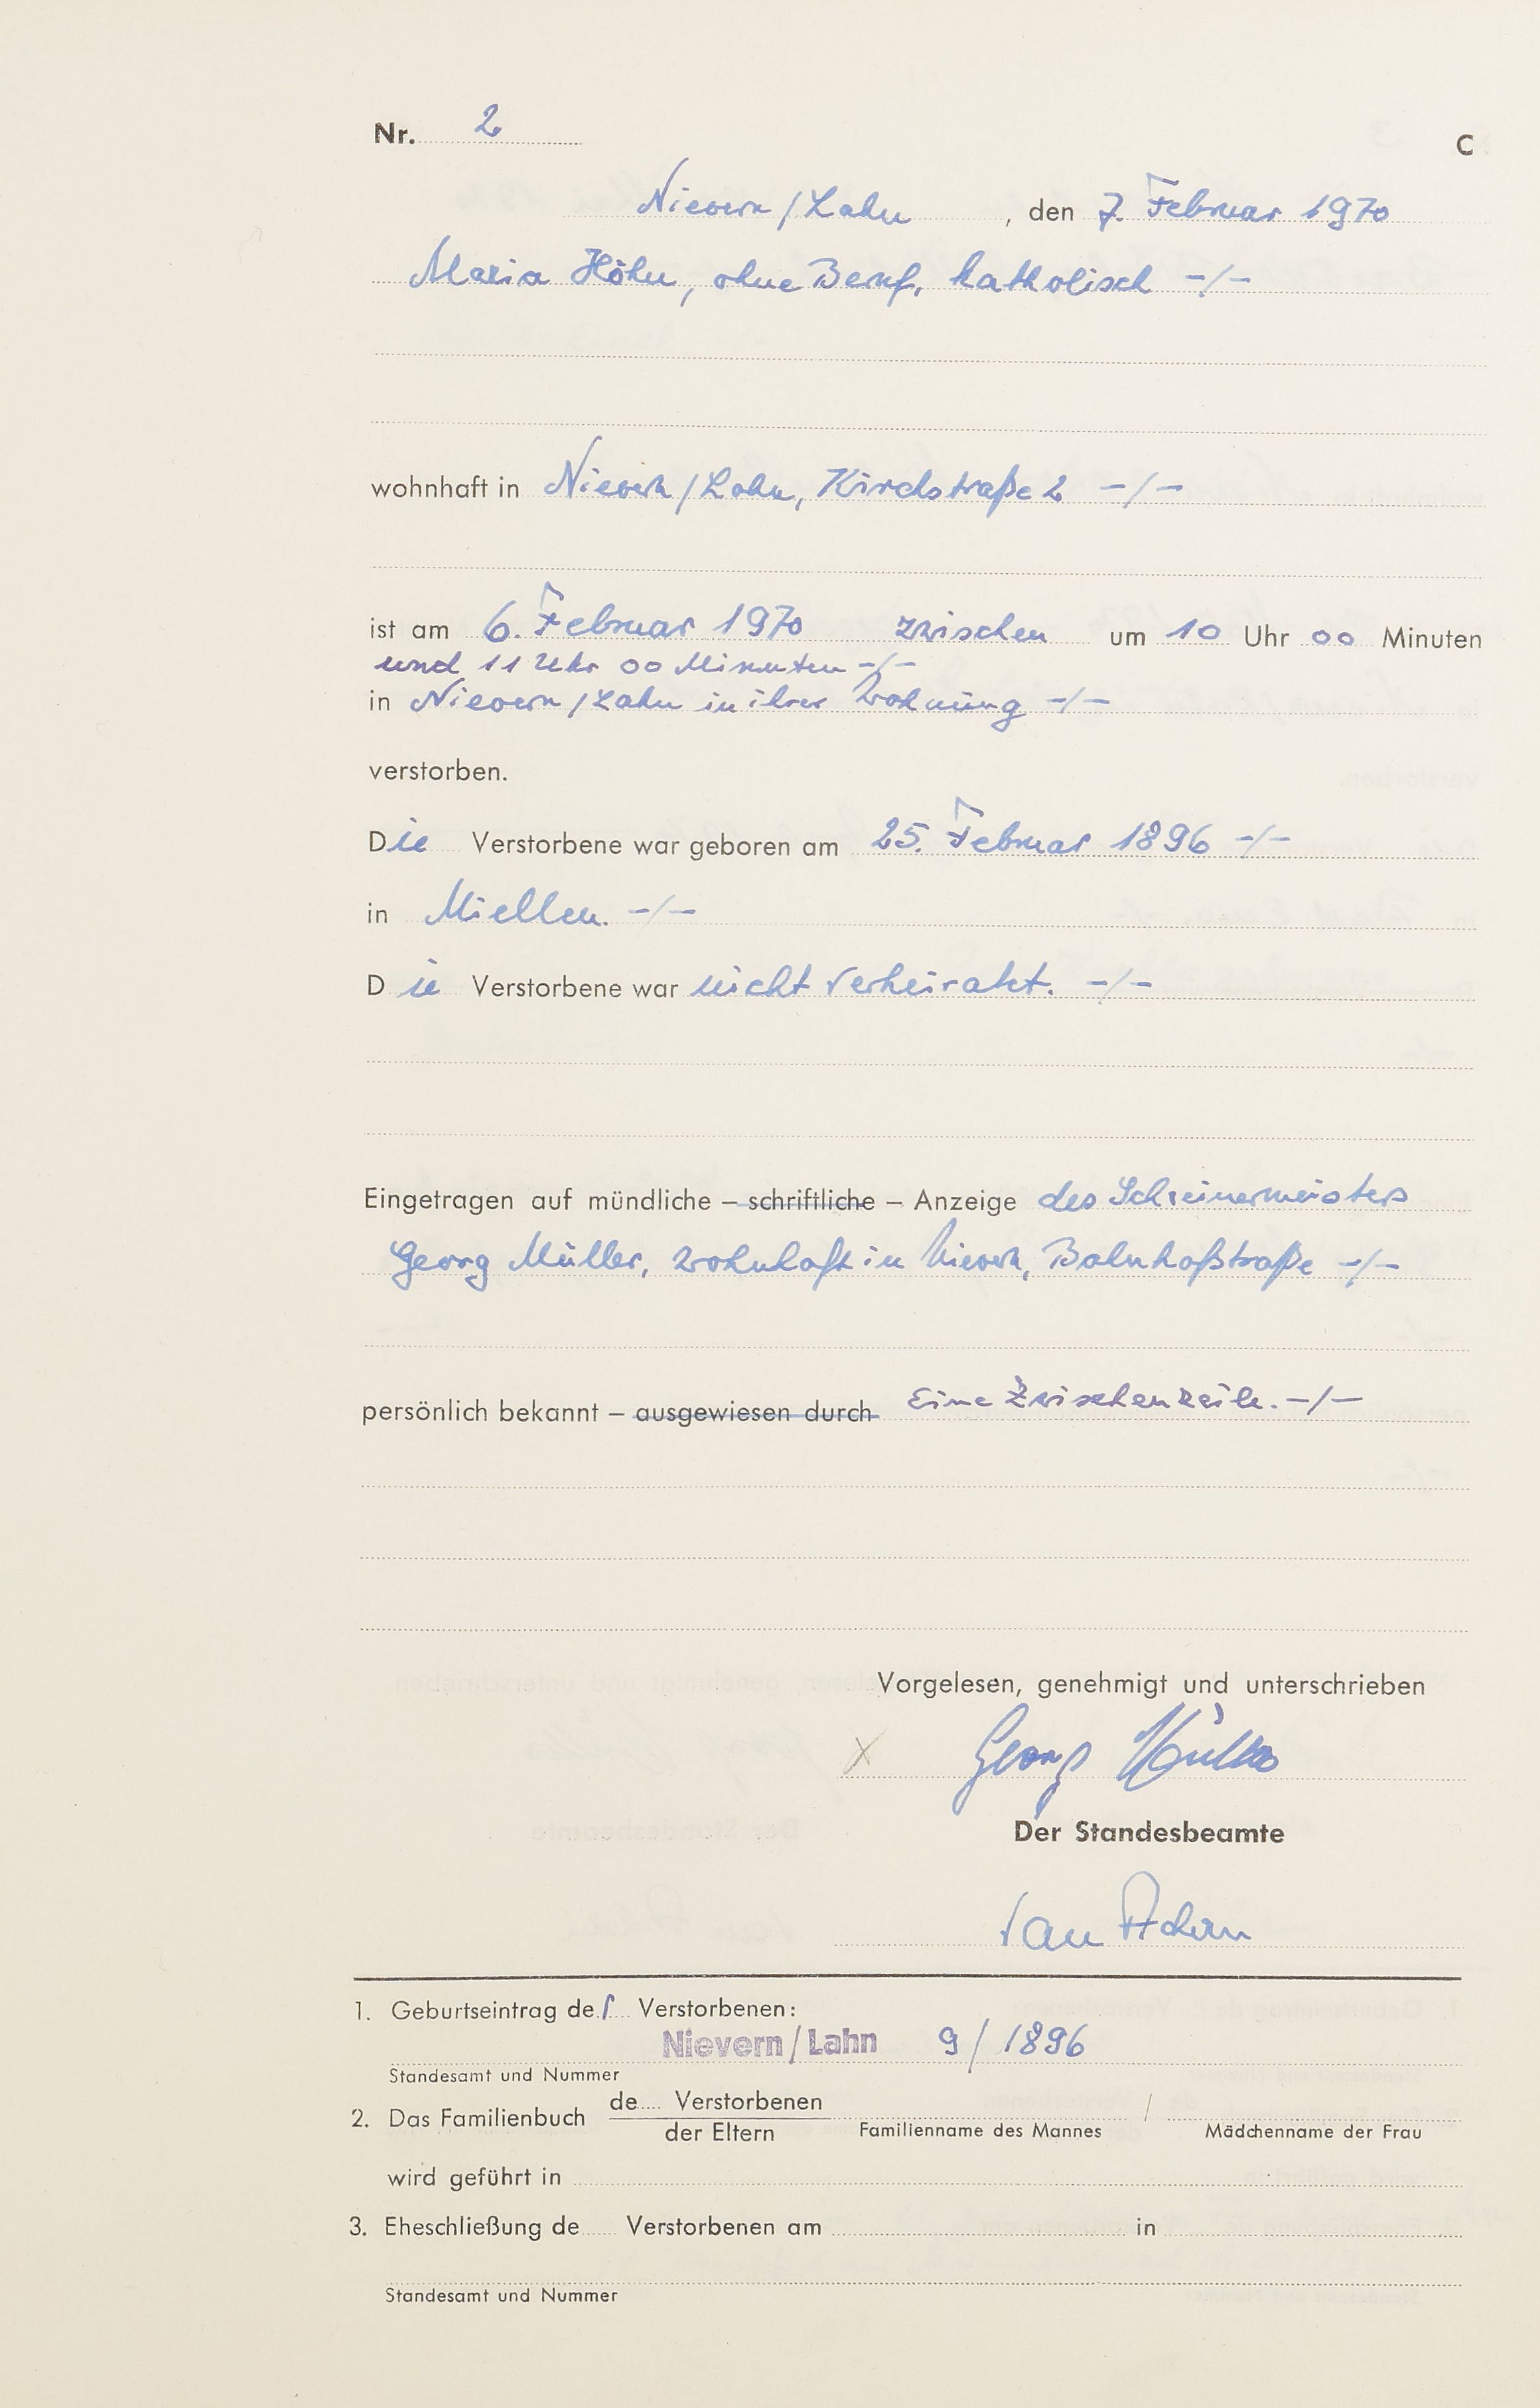 Nr. 2
C
Nievern/Lahn, den 7. Februar 1970
Maria Höhn, ohne Beruf, katholisch -/-
wohnhaft in Nievern/Lahn, Kirchstraße 2 -/-
ist am 6. Februar 1970 zwischen um 10 Uhr 00 Minuten
und 11 Uhr 00 Minuten -/-
in Nievern/Lahn in ihrer Wohnung -/-
verstorben.
Die Verstorbene war geboren am 25. Februar 1896 -/-
in Miellen. -/-
Die Verstorbene war nicht verheiratet. -/-
Eingetragen auf mündliche – schriftliche – Anzeige des Schreinermeisters
Georg Müller, wohnhaft in Nievern, Bahnhofstraße -/-
persönlich bekannt – ausgewiesen durch Eine Zwischenzeile. -/-
Vorgelesen, genehmigt und unterschrieben
x Georg Müller
Der Standesbeamte
1. Geburtseintrag der Verstorbenen:
Nievern/Lahn 9/1896
Standesamt und Nummer
2. Das Familienbuch de.... Verstorbenen / 
der Eltern Familienname des Mannes Mädchenname der Frau
wird geführt in
3. Eheschließung de..... Verstorbenen am in
Standesamt und Nummer